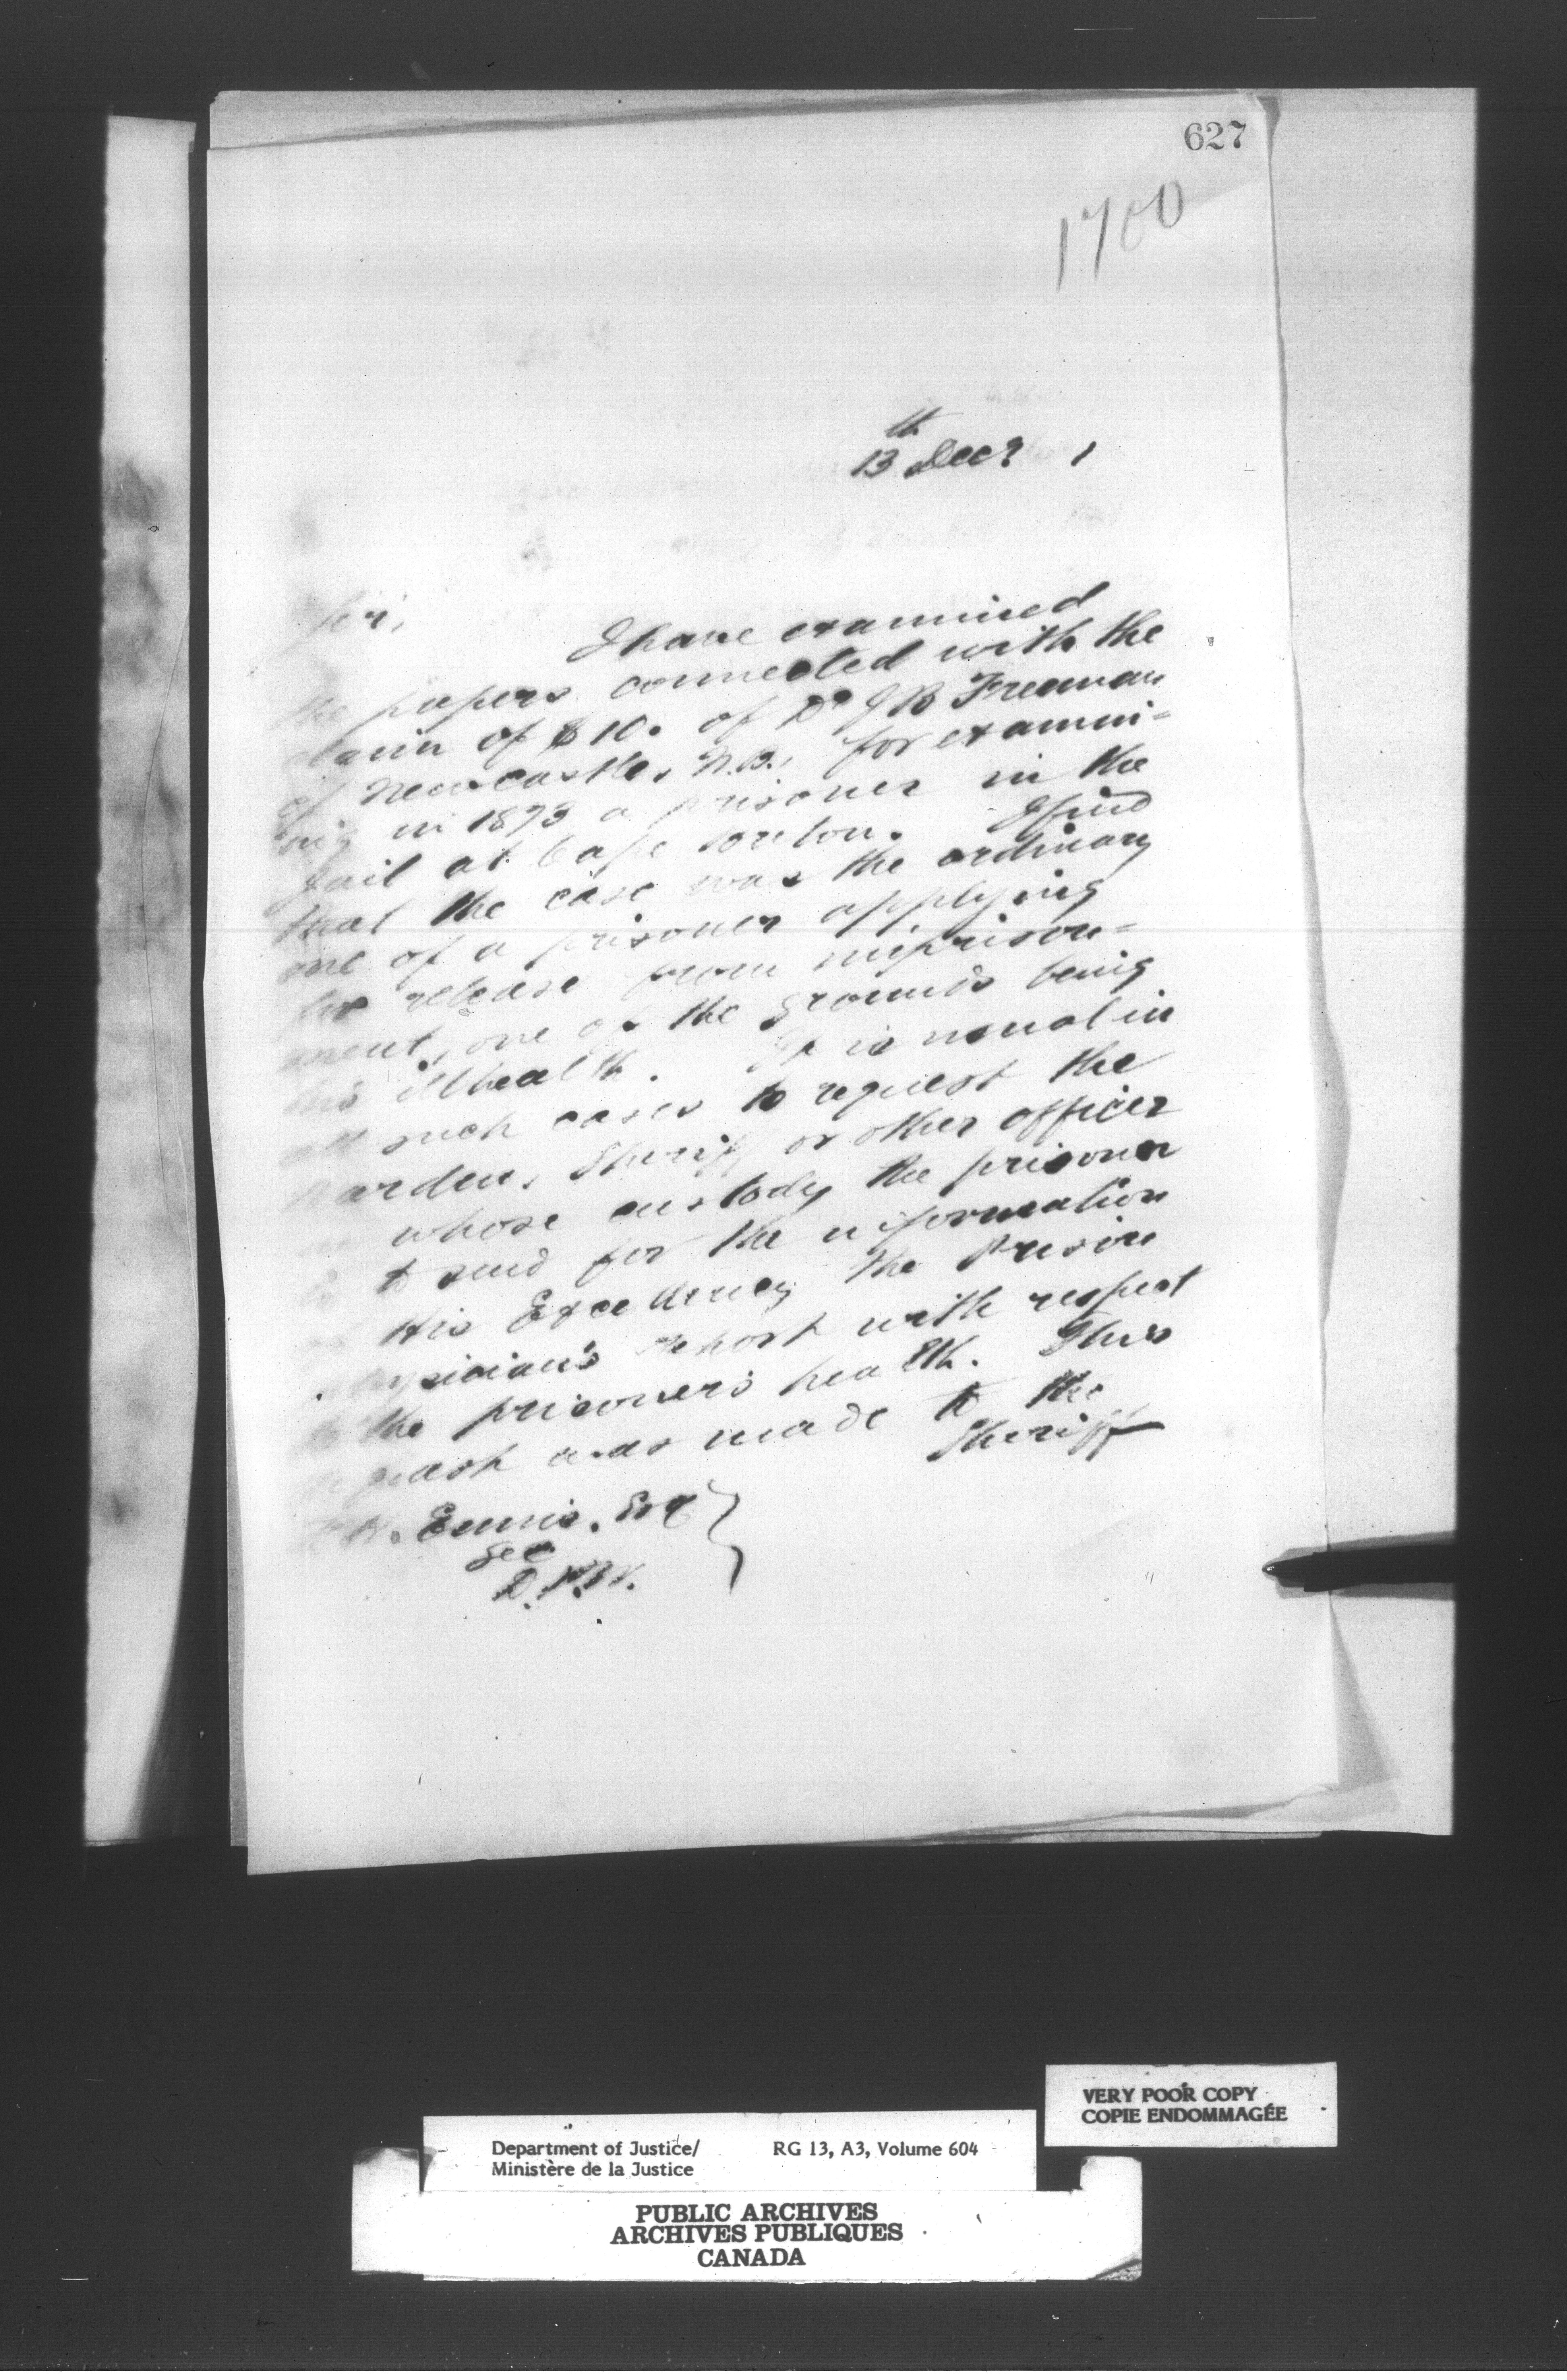 627
1700
13th Decr 1
Sir,
I have examined
the papers connected with the
claim of $10. of Dr J B Freeman
of Newcastle, N.B., for examin-
ing in 1873 a prisoner in the
Jail at Cape Breton. I find
that the case was the ordinary
one of a prisoner applying
for release from imprison-
ment, one of the grounds being
his ill health. It is usual in
all such cases to request the
Warden, Sheriff or other officer
in whose custody the prisoner
is to send for the information
of His Excellency the Prison
physician's report with respect
to the prisoner's health. This
request was made to the
Sheriff
Ennis, Esq
Sec
D.P.W.
VERY POOR COPY
COPIE ENDOMMAGÉE
Department of Justice/ RG 13, A3, Volume 604
Ministère de la Justice
PUBLIC ARCHIVES
ARCHIVES PUBLIQUES
CANADA